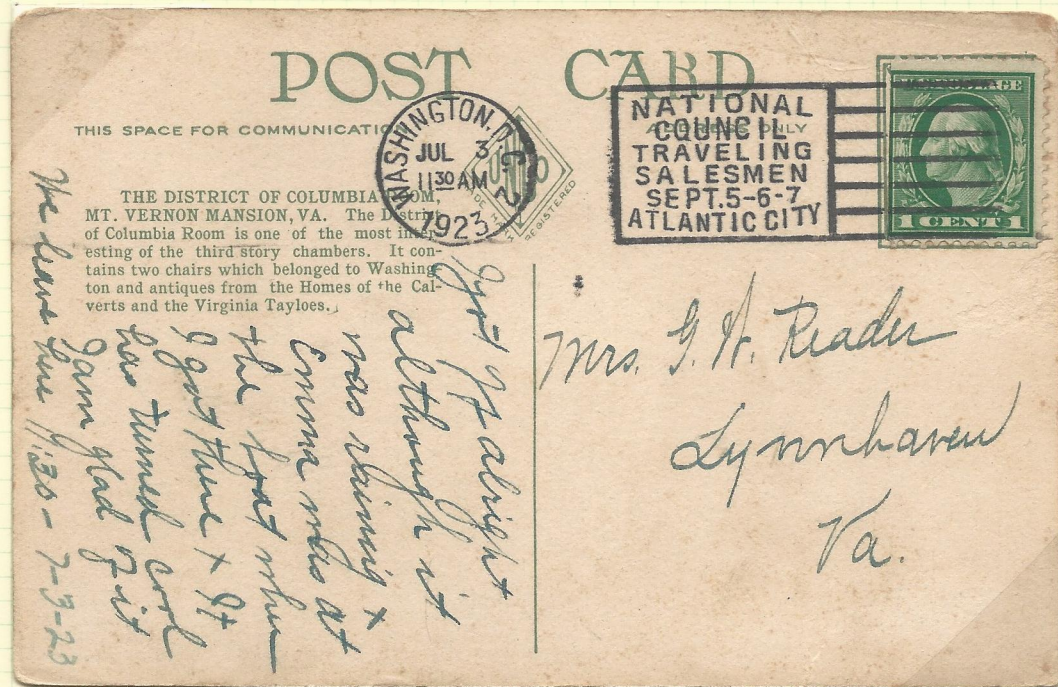 POST CARD
THIS SPACE FOR COMMUNICATION
ONLY
WASHINGTON, D.C. 2
JUL 3
11 30 AM
1923
NATIONAL
COUNCIL
TRAVELING
SALESMEN
SEPT. 5-6-7
ATLANTIC CITY
1 CENT 1
REGISTERED
THE DISTRICT OF COLUMBIA ROOM,
MT. VERNON MANSION, VA. The District
of Columbia Room is one of the most inter-
esting of the third story chambers. It con-
tains two chairs which belonged to Washing-
ton and antiques from the Homes of the Cal-
verts and the Virginia Tayloes.
alright
although it
was raining +
Emma was at
the boat when
I got there + It
has turned cool
I am glad of it
We leave here 9:30 - 7-3-23
Mrs. G. W. Reader
Lynnhaven
Va.